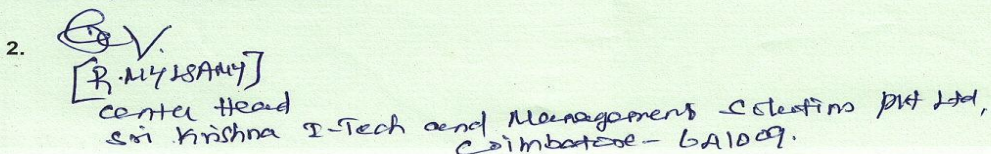 2.
[R.MYLSAMY]
Center Head
Sri Krishna I-Tech and Management Solutions Pvt Ltd,
Coimbatore - 641009.